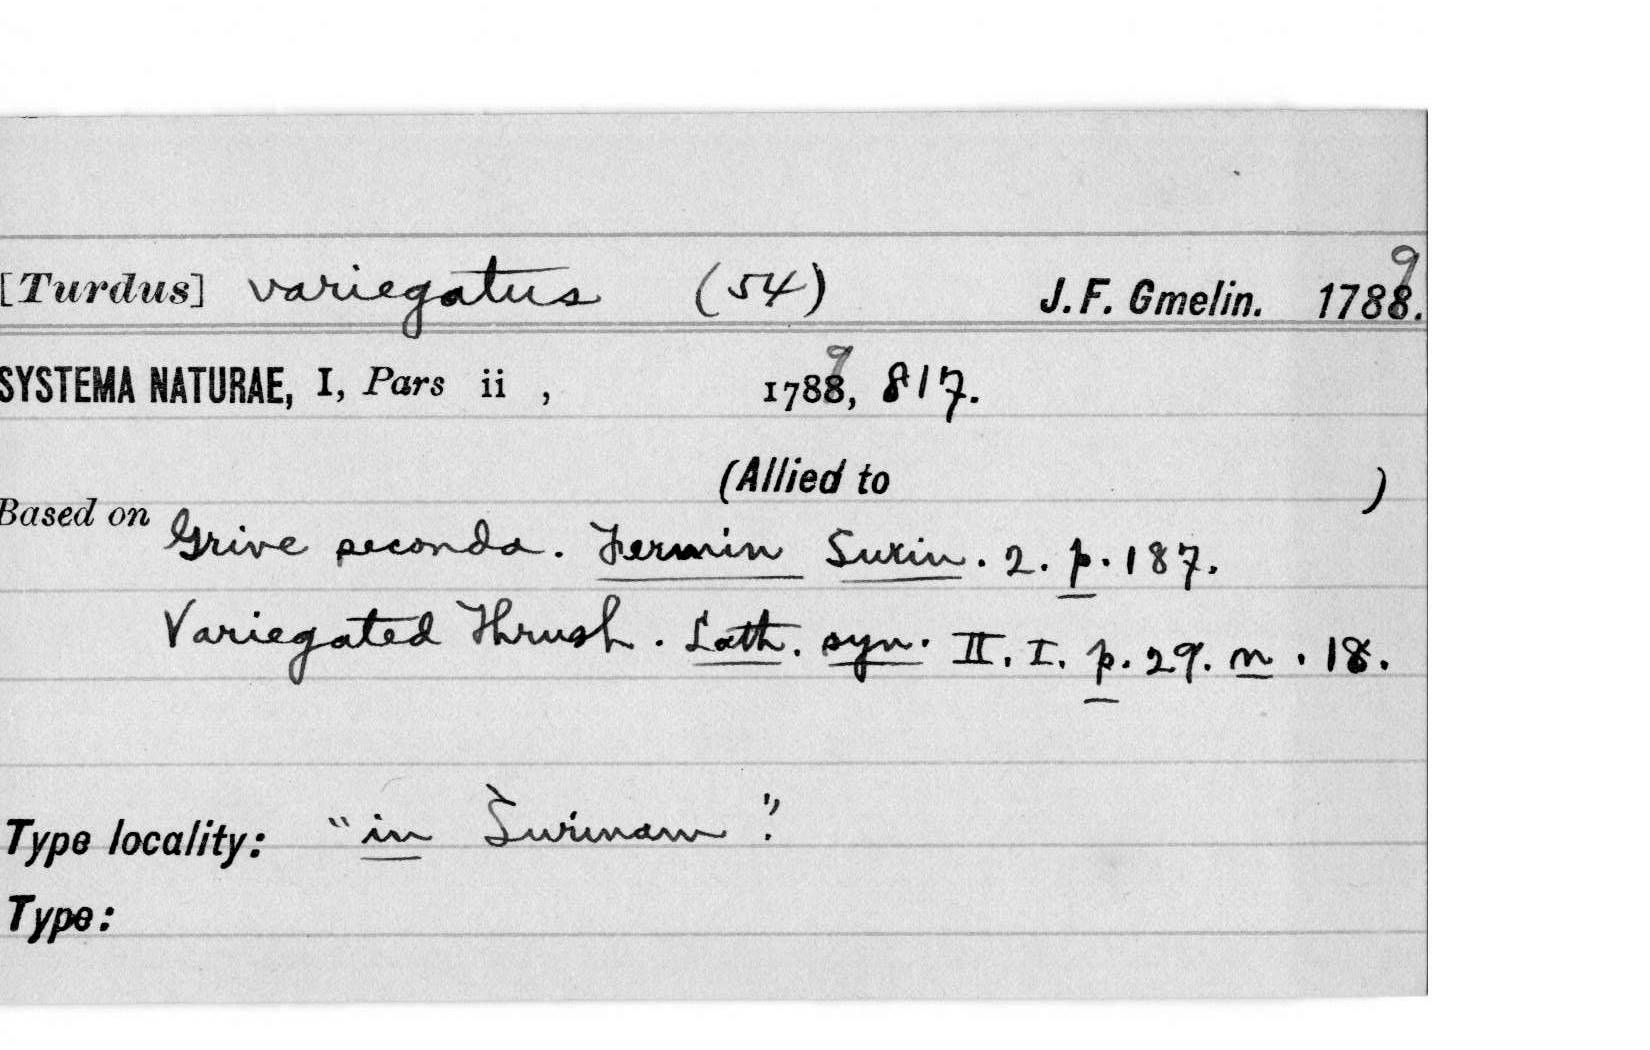 [Turdus] variegatus (54) J. F. Gmelin. 17889.
SYSTEMA NATURAE, I, Pars ii , 17889, 817.
(Allied to )
Based on Grive seconda. Fermin Surin. 2. p. 187.
Variegated Thrush. Lath. syn. II. I. p. 29. n. 18.
Type locality: "in Surinam".
Type: